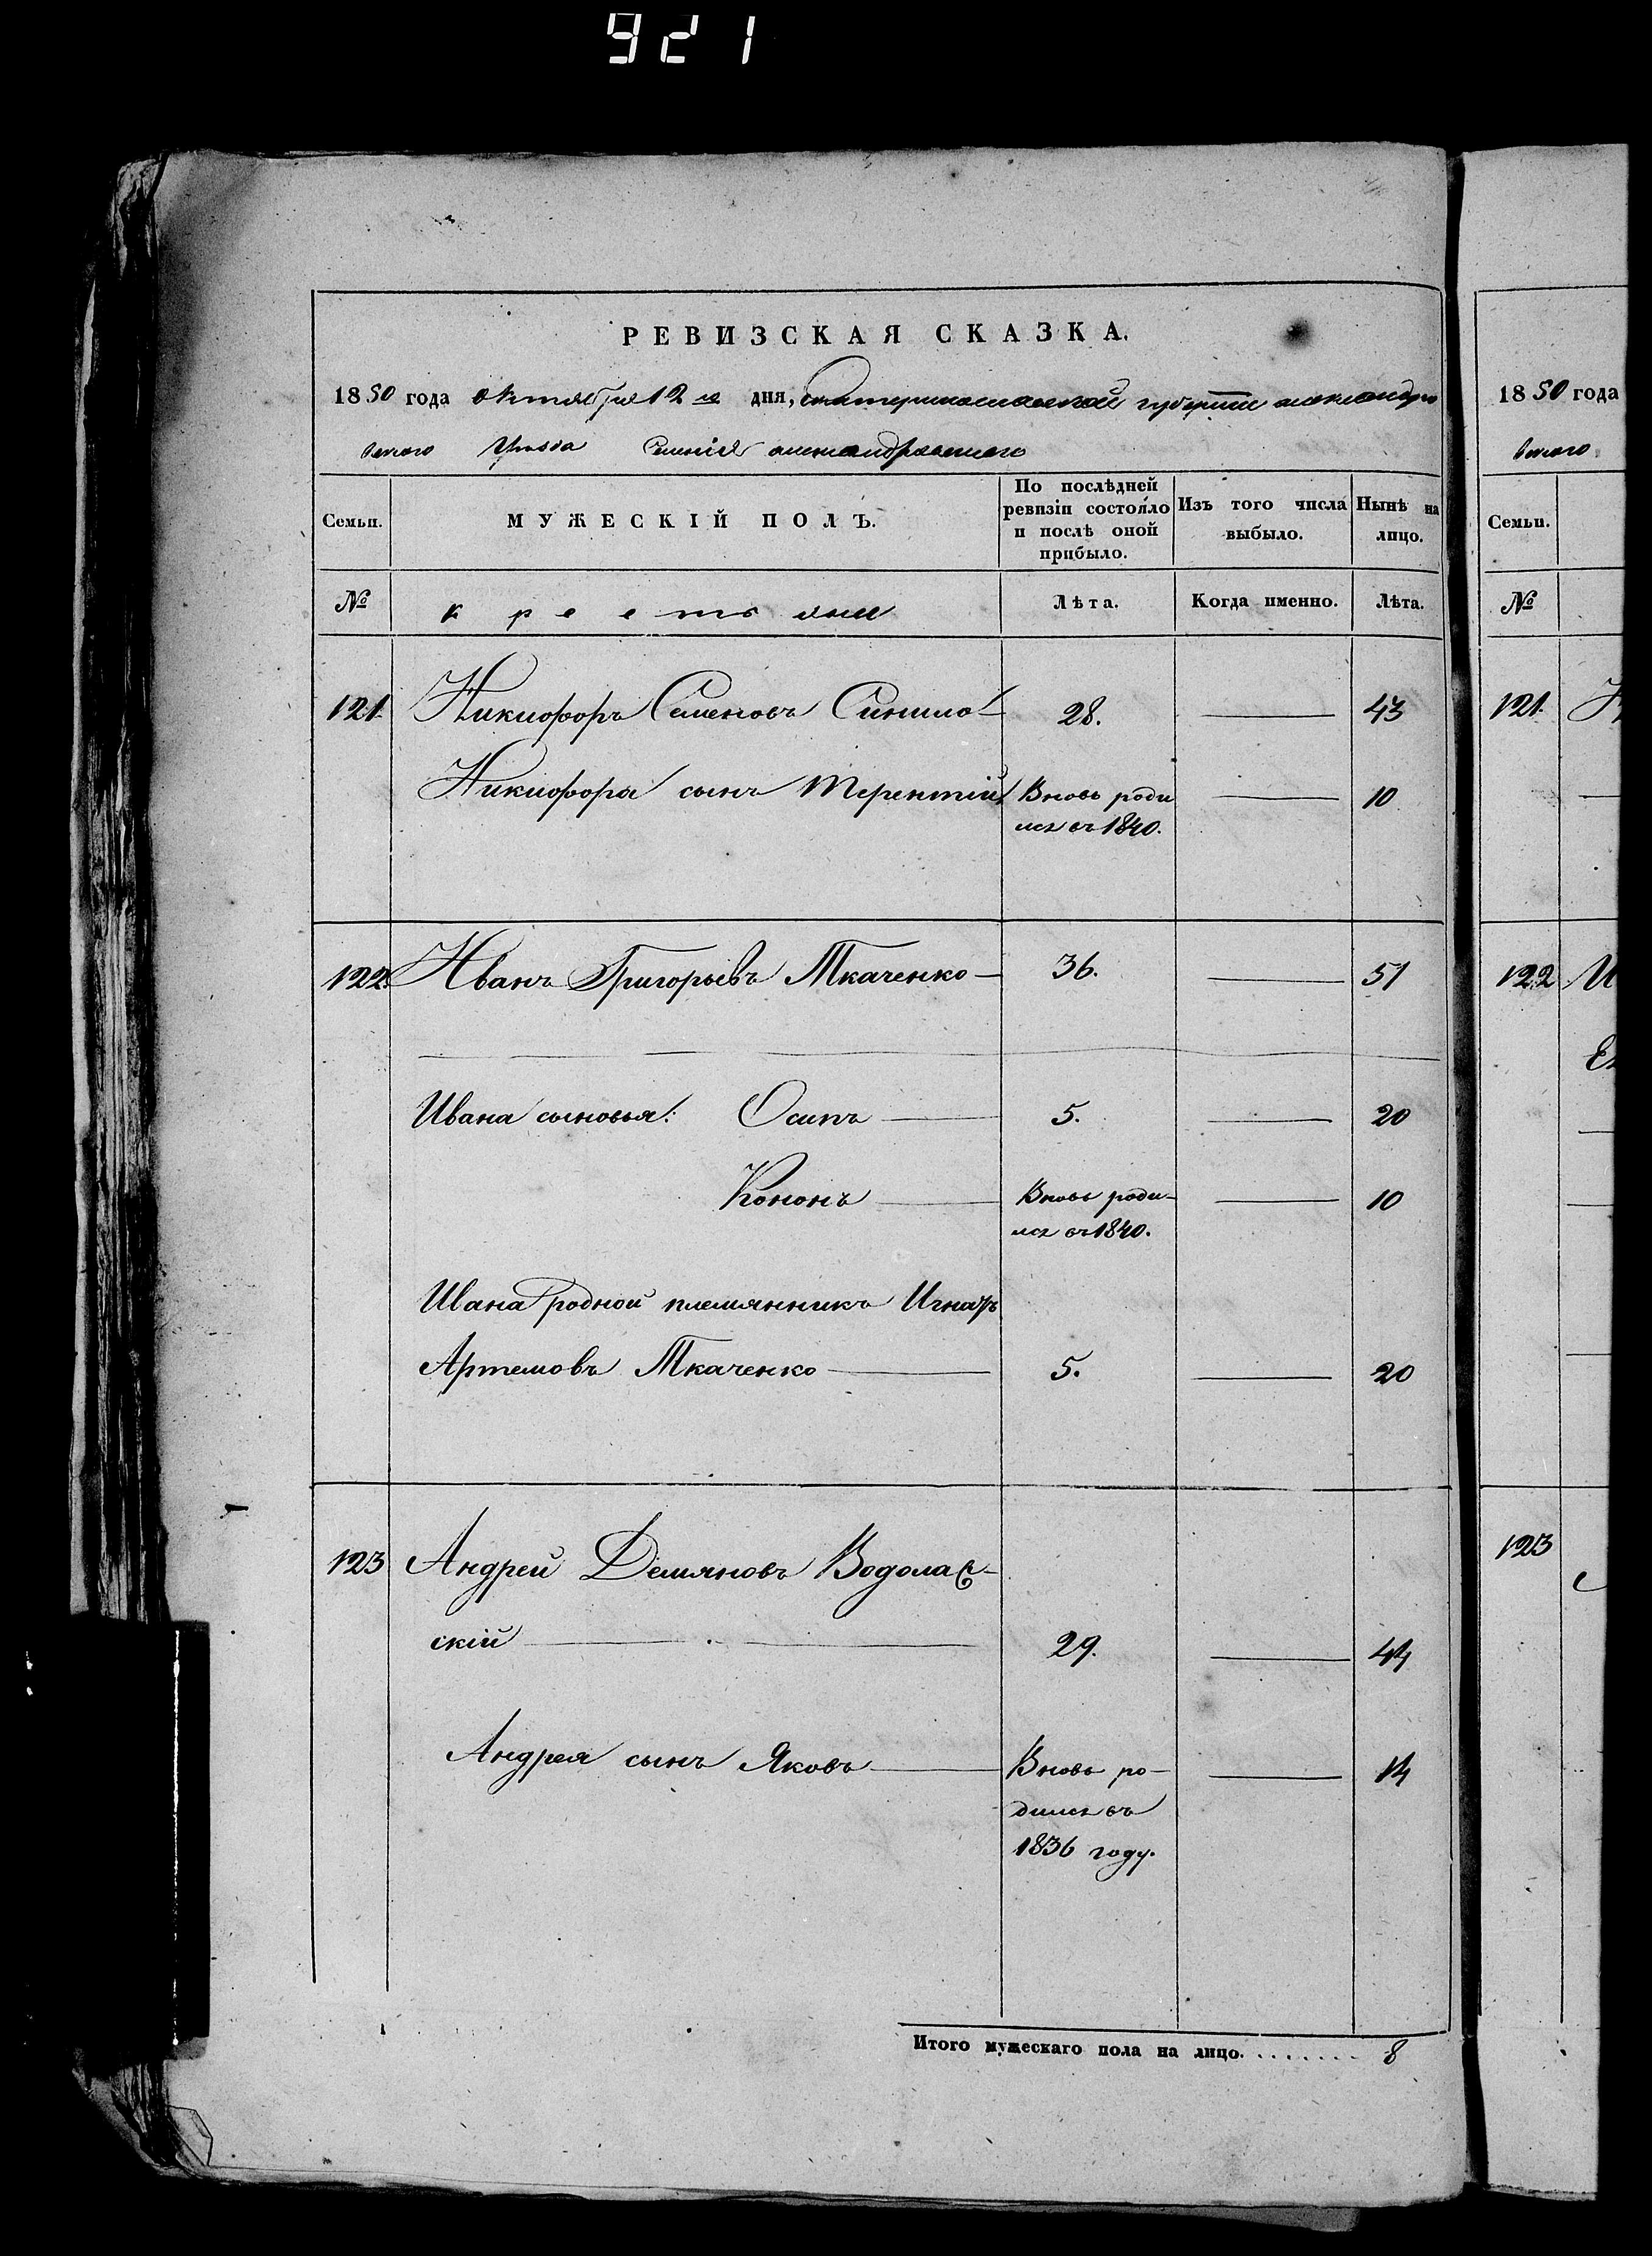 921
РЕВИЗСКАЯ СКАЗКА.
1850 года октября 12 го дня, Екатеринославской губернии александро
вскаго Уезда Селенія александровскаго
Семьи. МУЖЕСКІЙ ПОЛЪ. По послѣдней ревизіи состояло и послѣ оной прибыло. Изъ того числа выбыло. Нынѣ на лицо.
№ крестьяне Лѣта. Когда именно. Лѣта.
121. Никифоръ Семеновъ 28. 43
Никифора сынъ Терентій Вновь роди 10
лся въ 1840.
122. Иванъ Григорьевъ Ткаченко 36. 51
Ивана сыновья: Осипъ 5. 20
Кононъ Вновь роди- 10
лся въ 1840.
Ивана родной племянникъ Игнатъ
Артемовъ Ткаченко 5. 20
123 Андрей Демяновъ Водолаж-
скій 29. 44
Андрея сынъ Яковъ Вновь ро- 14
дился въ
1836 году.
Итого мужескаго пола на лицо. 8
1850 года
вскаго
Семьи.
№
121.
122
123